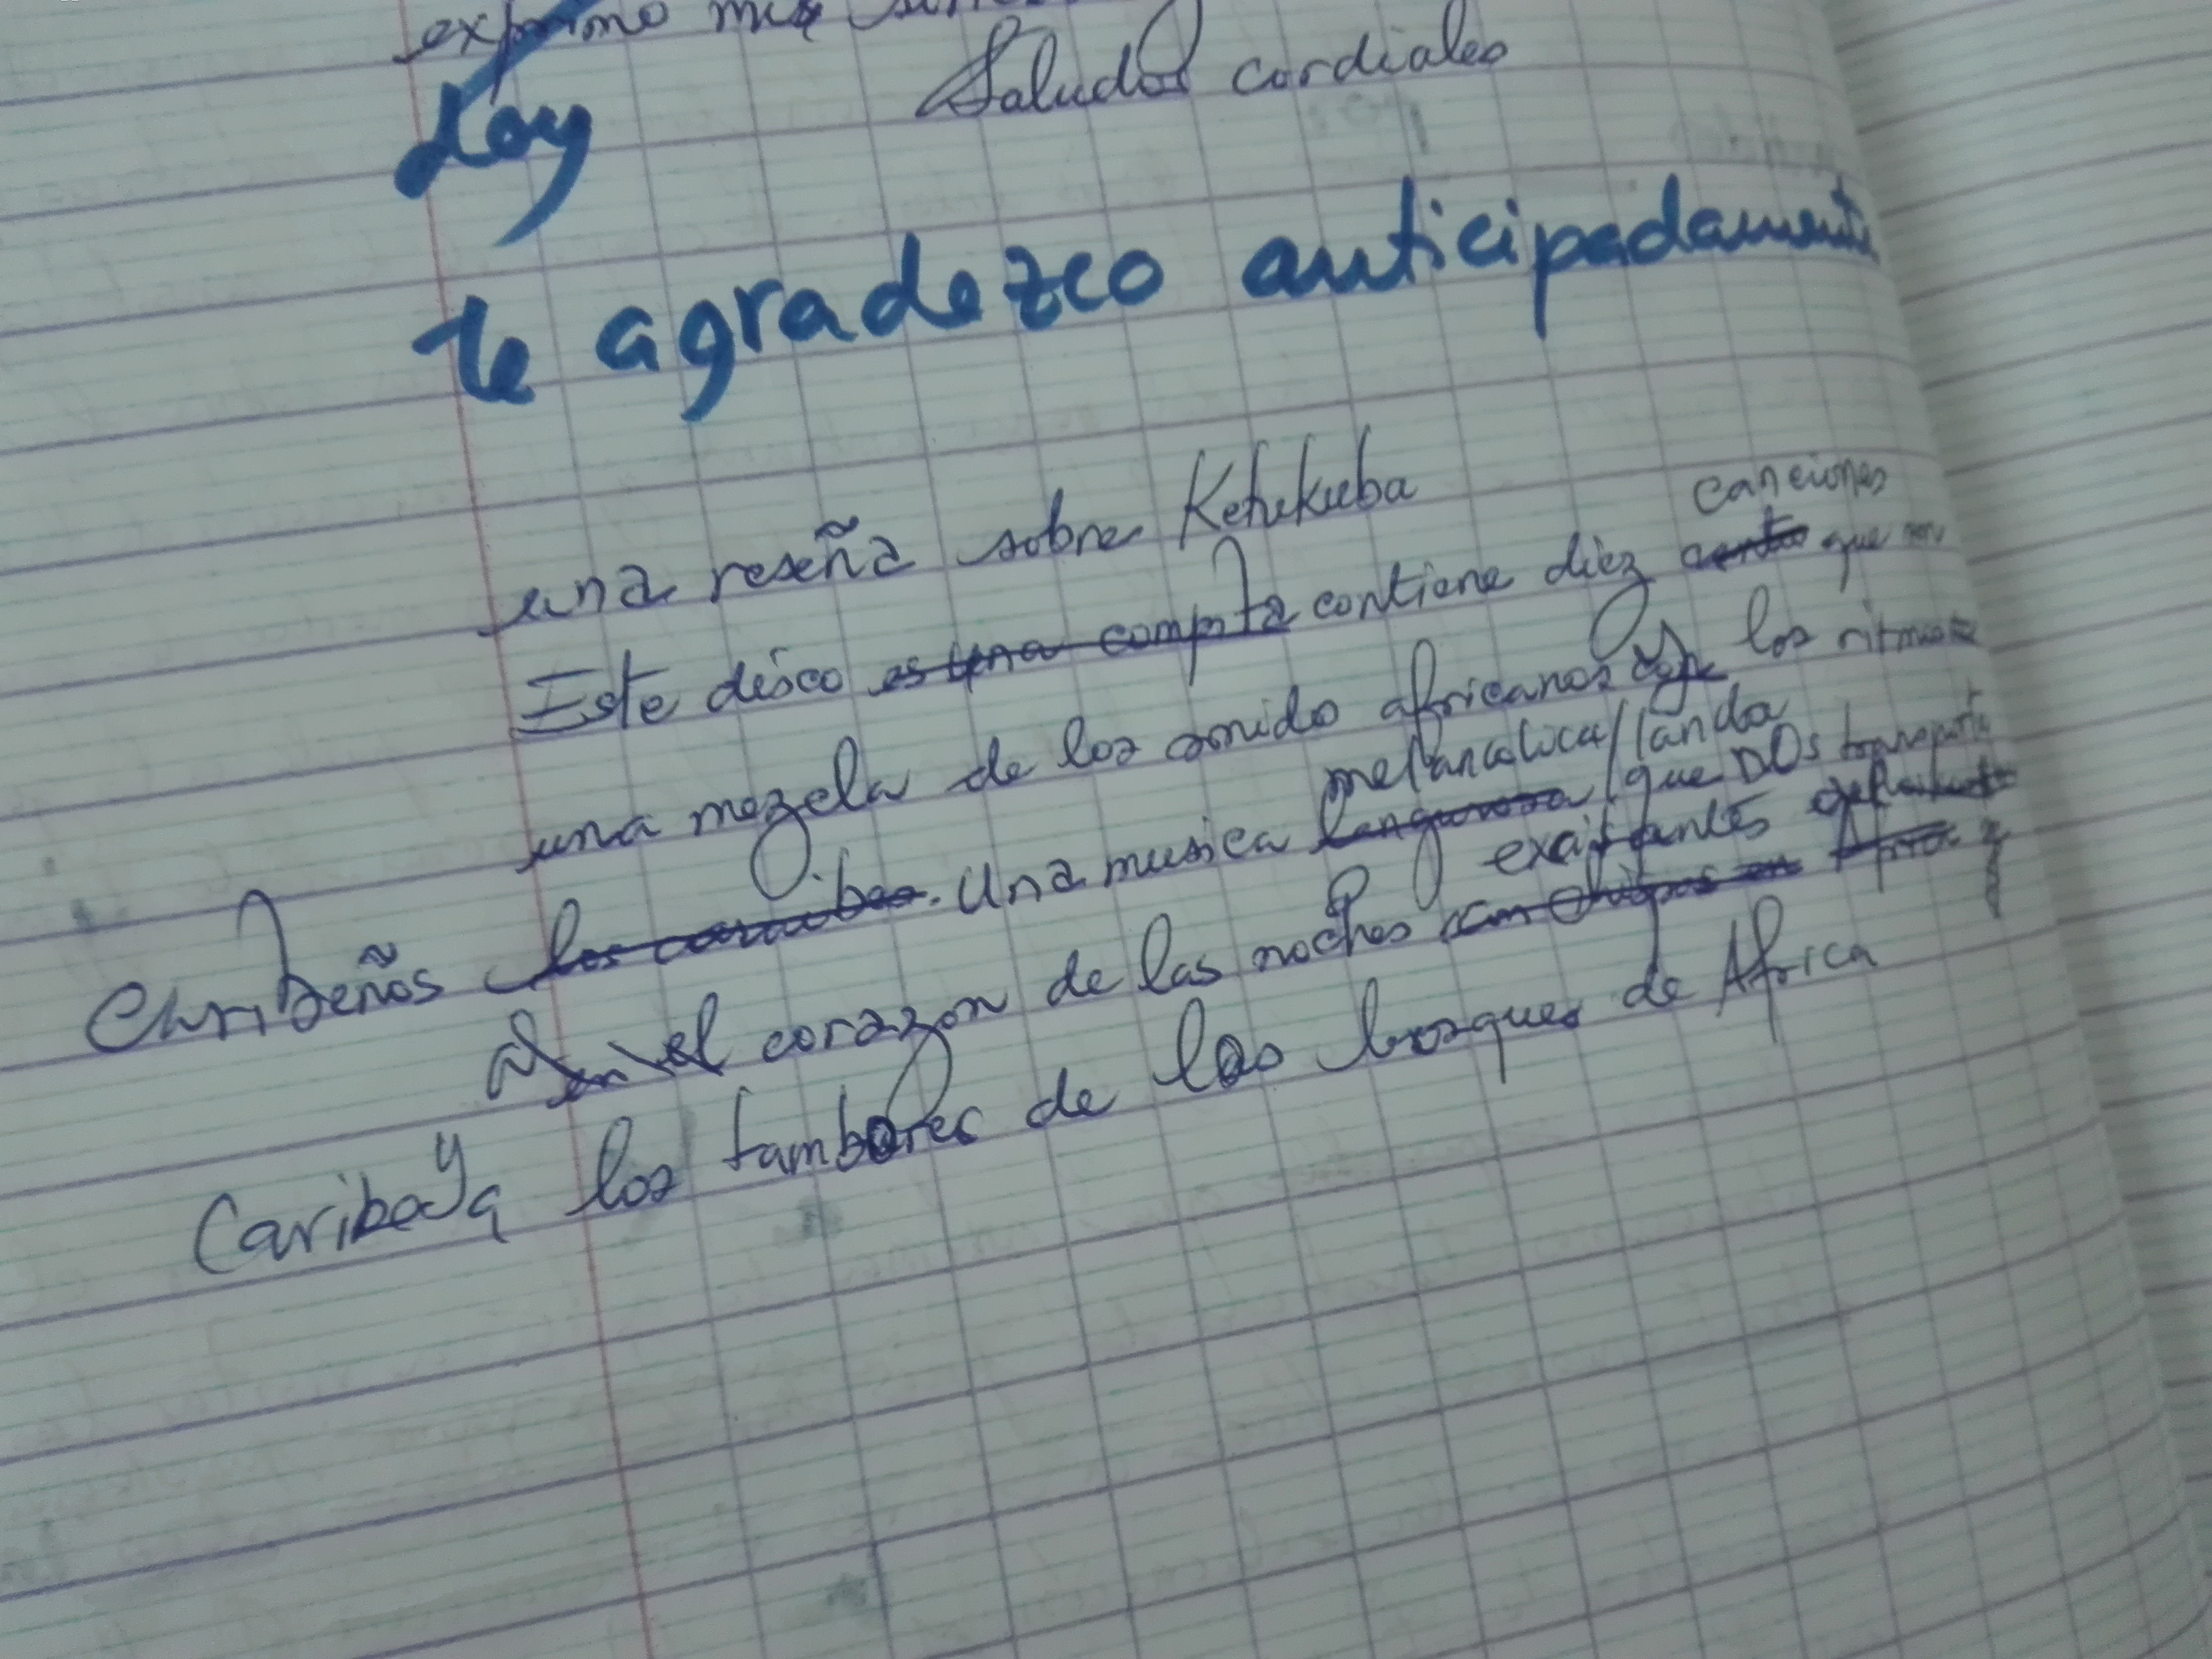 exprimo mis
Saludos cordiales
doy
te agradezco anticipadamente
una reseña sobre Ketukuba
canciones
Este disco es una compta contiene diez que son
una mezcla de los sonido africanos y los ritmos
melancolica/landa
Caribeños los caraibes. Una musica langurosa que nos transporta
exaltantes
a el corazon de las noches y
Caribe y a los tambores de los bosques de Africa